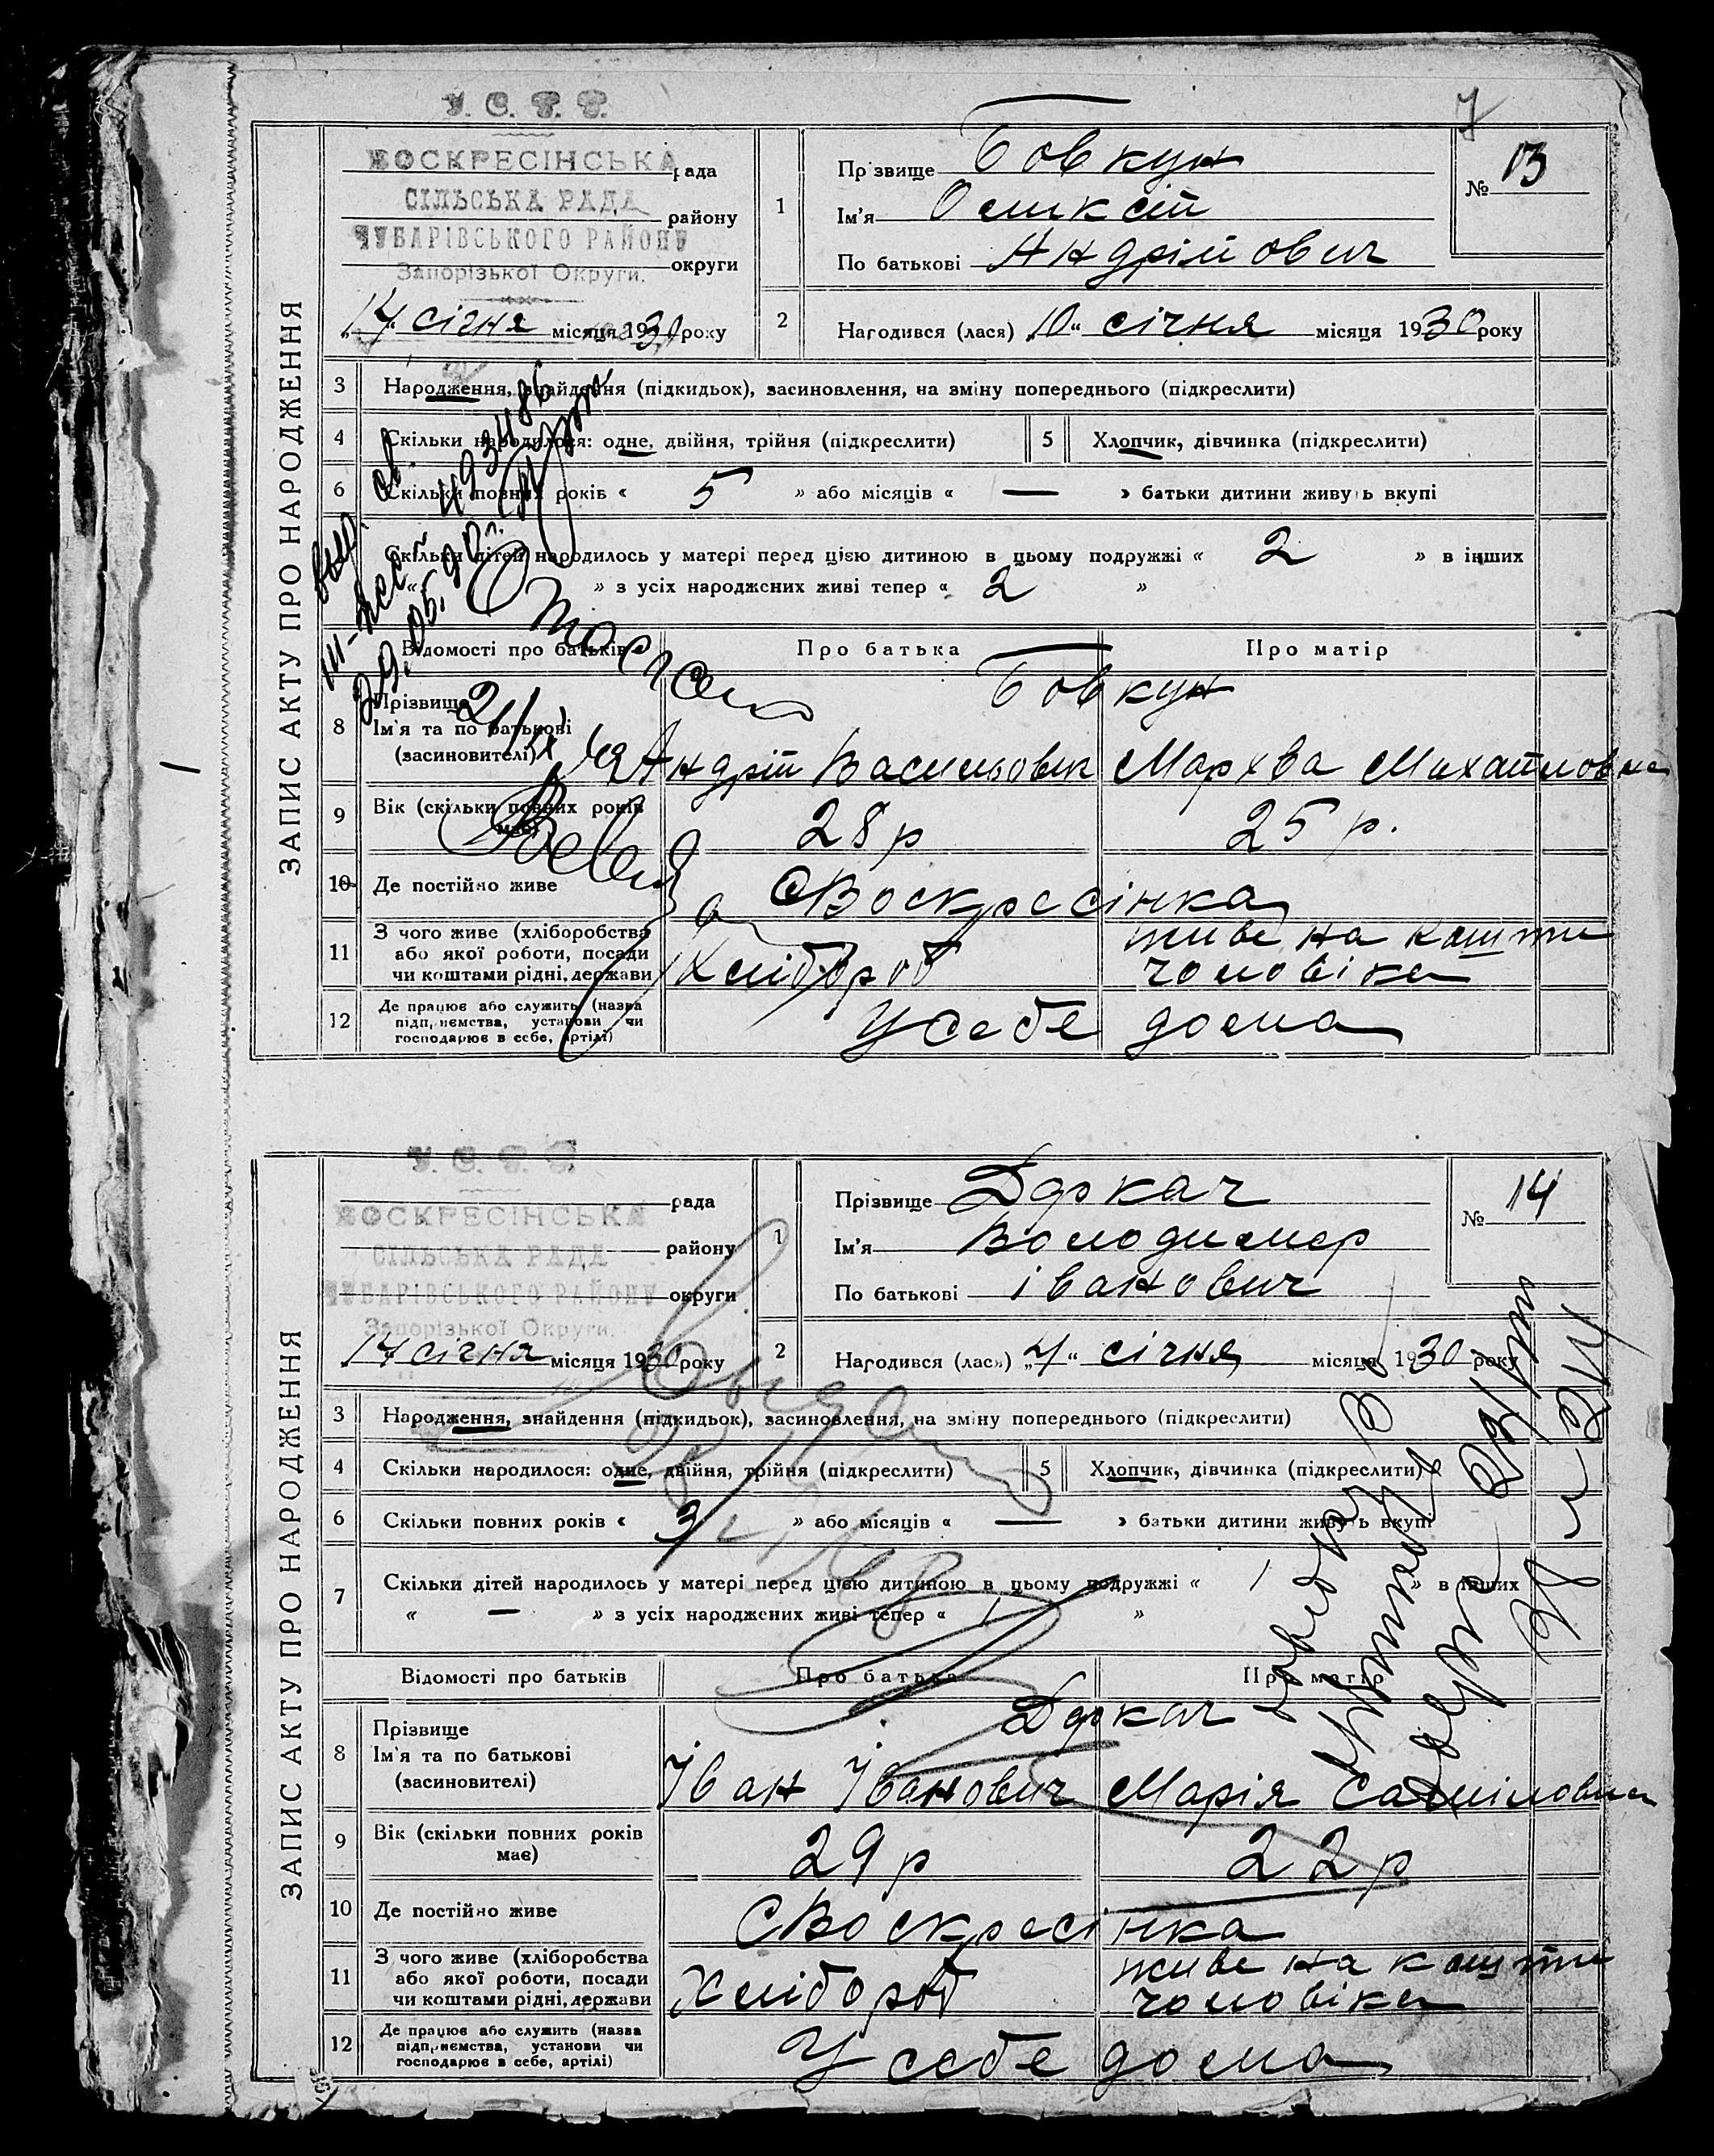 7
У. С. Р. Р.
ЗАПИС АКТУ ПРО НАРОДЖЕННЯ
ВОСКРЕСІНСЬКА рада
СІЛЬСЬКА РАДА району
ЧУБАРІВСЬКОГО РАЙОНУ
Запорізької Округи. округи
„14“ січня місяця 1930 року
1 Прізвище Бовкун
Ім'я Оликсій
По батькові Андрійович
№ 13
2 Народився (лася) „10“ січня місяця 1930 року
3 Народження, знайдення (підкидьок), засиновлення, на зміну попереднього (підкреслити)
4 Скільки народилося: одне, двійня, трійня (підкреслити) 5 Хлопчик, дівчинка (підкреслити)
6 Скільки повних років « 5 » або місяців « — » батьки дитини живуть вкупі
Скільки дітей народилось у матері перед цією дитиною в цьому подружжі « 2 » в інших
« » з усіх народжених живі тепер « 2 »
Відомості про батьків Про батька Про матір
8 Прізвище Бовкун
Ім'я та по батькові
(засиновителі) Андрій Васильович Мархва Михайловна
9 Вік (скільки повних років має) 28 р 25 р.
10 Де постійно живе С Воскресінка
11 З чого живе (хліборобства
або якої роботи, посади
чи коштами рідні, держави Хлібороб живе на кошти чоловіка
12 Де працює або служить (назва
підприємства, установи чи
господарює в себе, артілі) У себе дома
У. С. Р. Р.
ЗАПИС АКТУ ПРО НАРОДЖЕННЯ
рада
ВОСКРЕСІНСЬКА
СІЛЬСЬКА РАДА району
ЧУБАРІВСЬКОГО РАЙОНУ округи
Запорізької Округи.
14 січня місяця 1930 року
1 Прізвище Деркач
Ім'я Володимер
По батькові іванович
№ 14
2 Народився (лася) „4“ січня місяця 1930 року
3 Народження, знайдення (підкидьок), засиновлення, на зміну попереднього (підкреслити)
4 Скільки народилося: одне, двійня, трійня (підкреслити) 5 Хлопчик, дівчинка (підкреслити)
6 Скільки повних років « 3 » або місяців « — » батьки дитини живуть вкупі
7 Скільки дітей народилось у матері перед цією дитиною в цьому подружжі « 1 » в інших
« — » з усіх народжених живі тепер « 1 »
Відомості про батьків Про батька Про матір
8 Прізвище Деркач
Ім'я та по батькові
(засиновителі) Іван Іванович Марія Самійловна
9 Вік (скільки повних років
має) 29 р 22 р
10 Де постійно живе С Воскресінка
11 З чого живе (хліборобства
або якої роботи, посади
чи коштами рідні, держави Хлібороб живе на кошти чоловіка
12 Де працює або служить (назва
підприємства, установи чи
господарює в себе, артілі) У себе дома